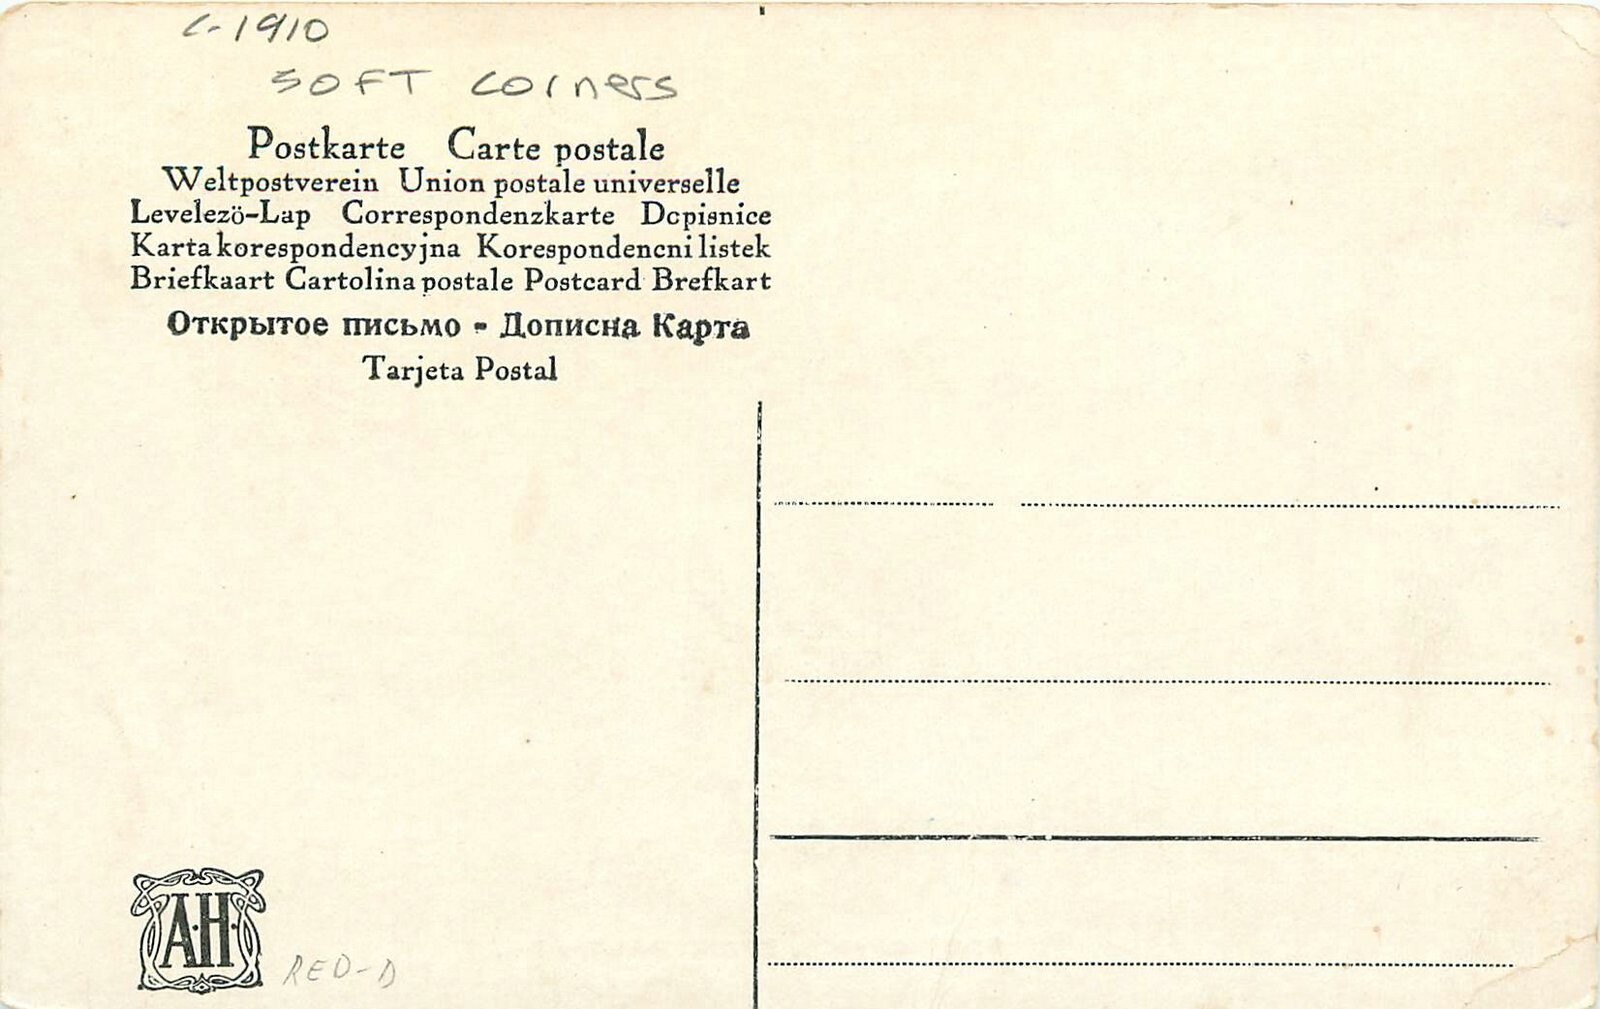 c-1910
SOFT corners
Postkarte Carte postale
Weltpostverein Union postale universelle
Levelezö-Lap Correspondenzkarte Dopisnice
Karta korespondencyjna Korespondencni listek
Briefkaart Cartolina postale Postcard Brefkart
Открытое письмо - Дописна Карта
Tarjeta Postal
A.H.
RED-D